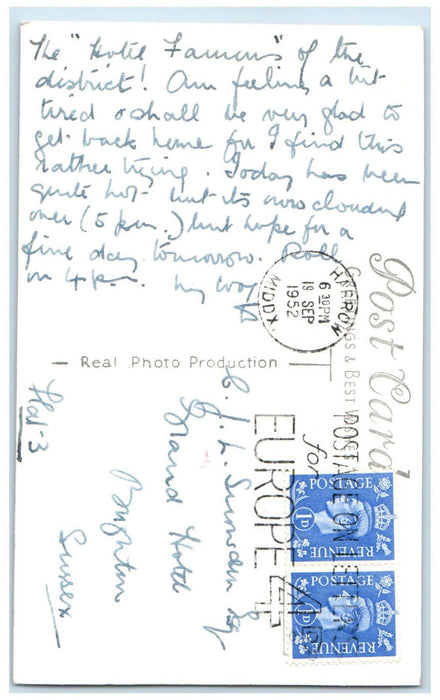 The "Hotel Famous" of the
district! Am feeling a bit
tired & shall be very glad to
get back home for I find this
rather trying. Today has been
quite hot but its now clouded
over (5 pm.) but hope for a
fine day tomorrow. Roll
on 4 pm. my
Post Card
GREETINGS & BEST WISHES
HARROW
6 30 PM
19 SEP
1952
MIDDX.
POSTAGE ON LETTERS
for
EUROPE 4D
Real Photo Production
C. J. L. Snowden Esq
Grand Hotel
Brighton
Sussex
POSTAGE
1D
REVENUE
POSTAGE
1D
REVENUE